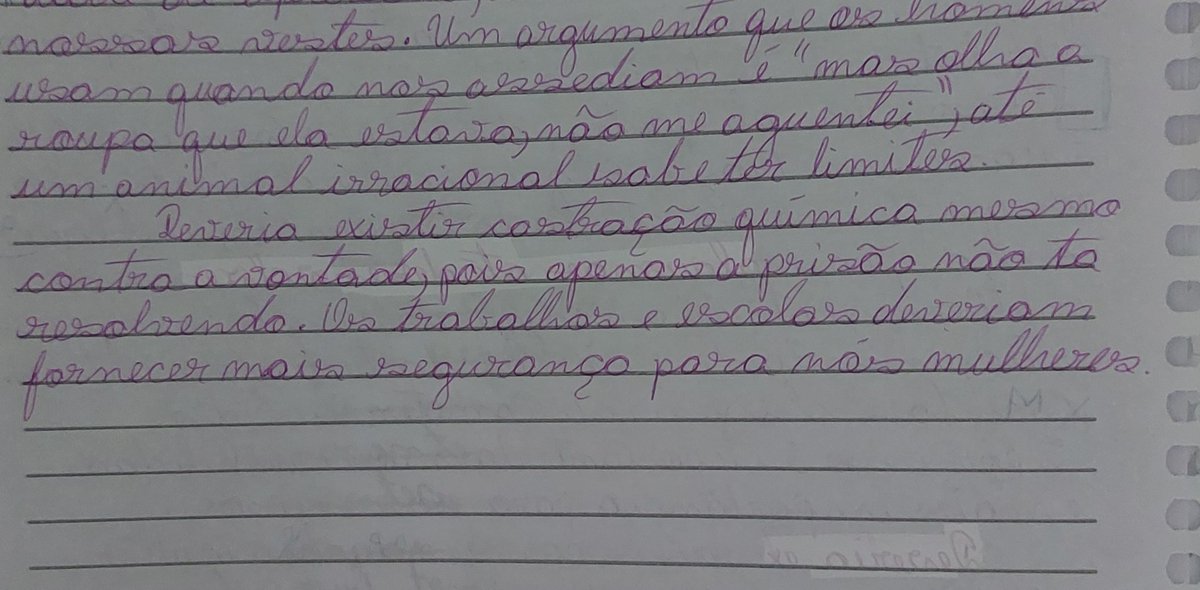 nossas vestes. Um argumento que os homens
usam quando nos assediam é "mas olha a
roupa que ela estava, não me aguentei", até
um animal irracional sabe ter limites.
Deveria existir castração química mesmo
contra a vontade, pois apenas a prisão não ta
resolvendo. Os trabalhos e escolas deveriam
fornecer mais segurança para nós mulheres.